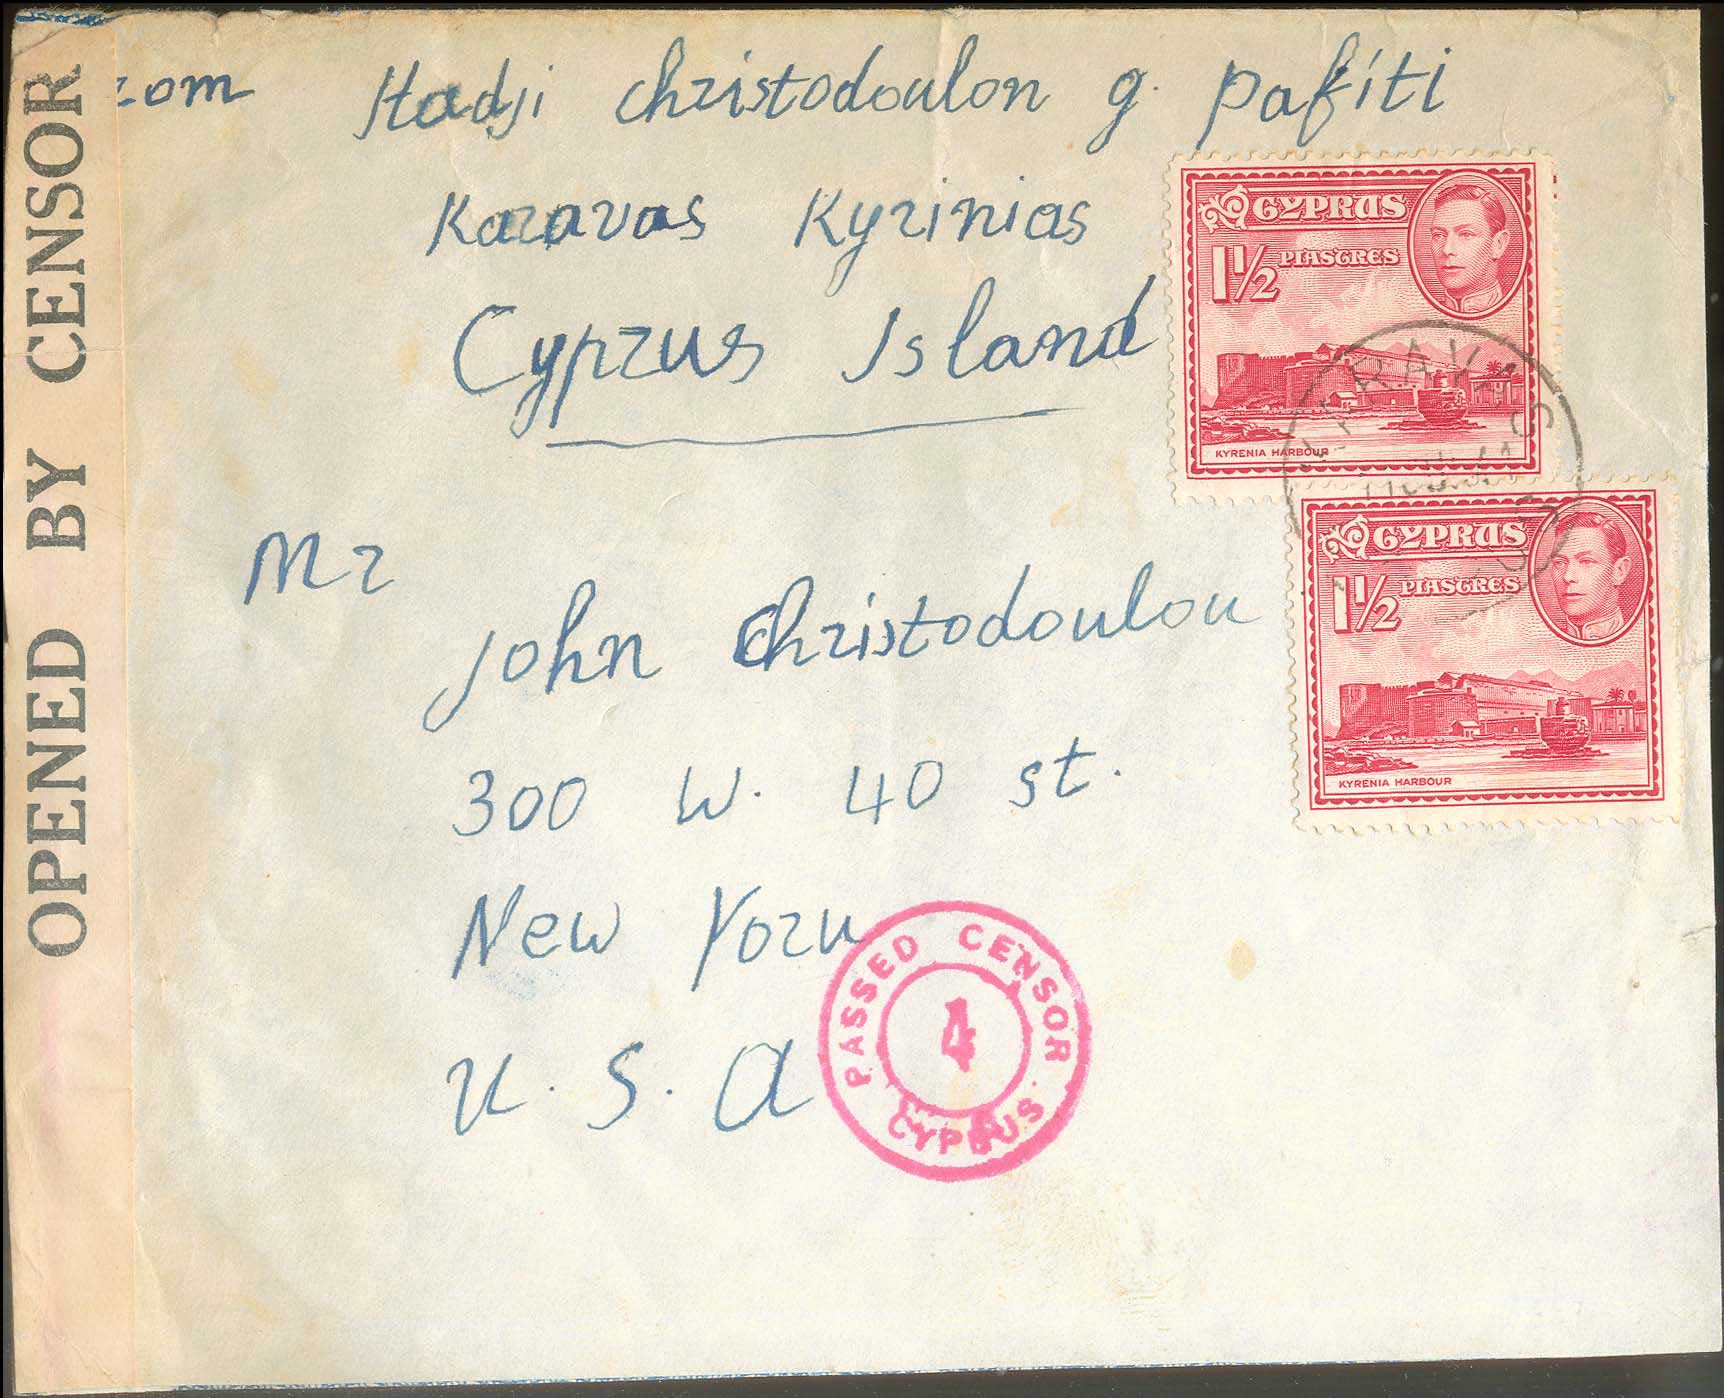 OPENED BY CENSOR
Hadji christodoulou g. pafiti
Karavas Kyrinias
Cyprus Island
CYPRUS
1½ PIASTRES
KYRENIA HARBOUR
KARAVAS
CYPRUS
1½ PIASTRES
KYRENIA HARBOUR
Mr
John christodoulou
300 W. 40 st.
New York
U. S. A
PASSED CENSOR
4
CYPRUS